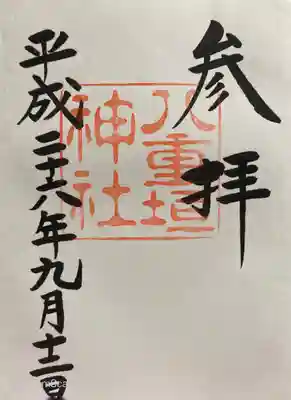 参拝
八重垣
神社
平成二十六年九月十二日